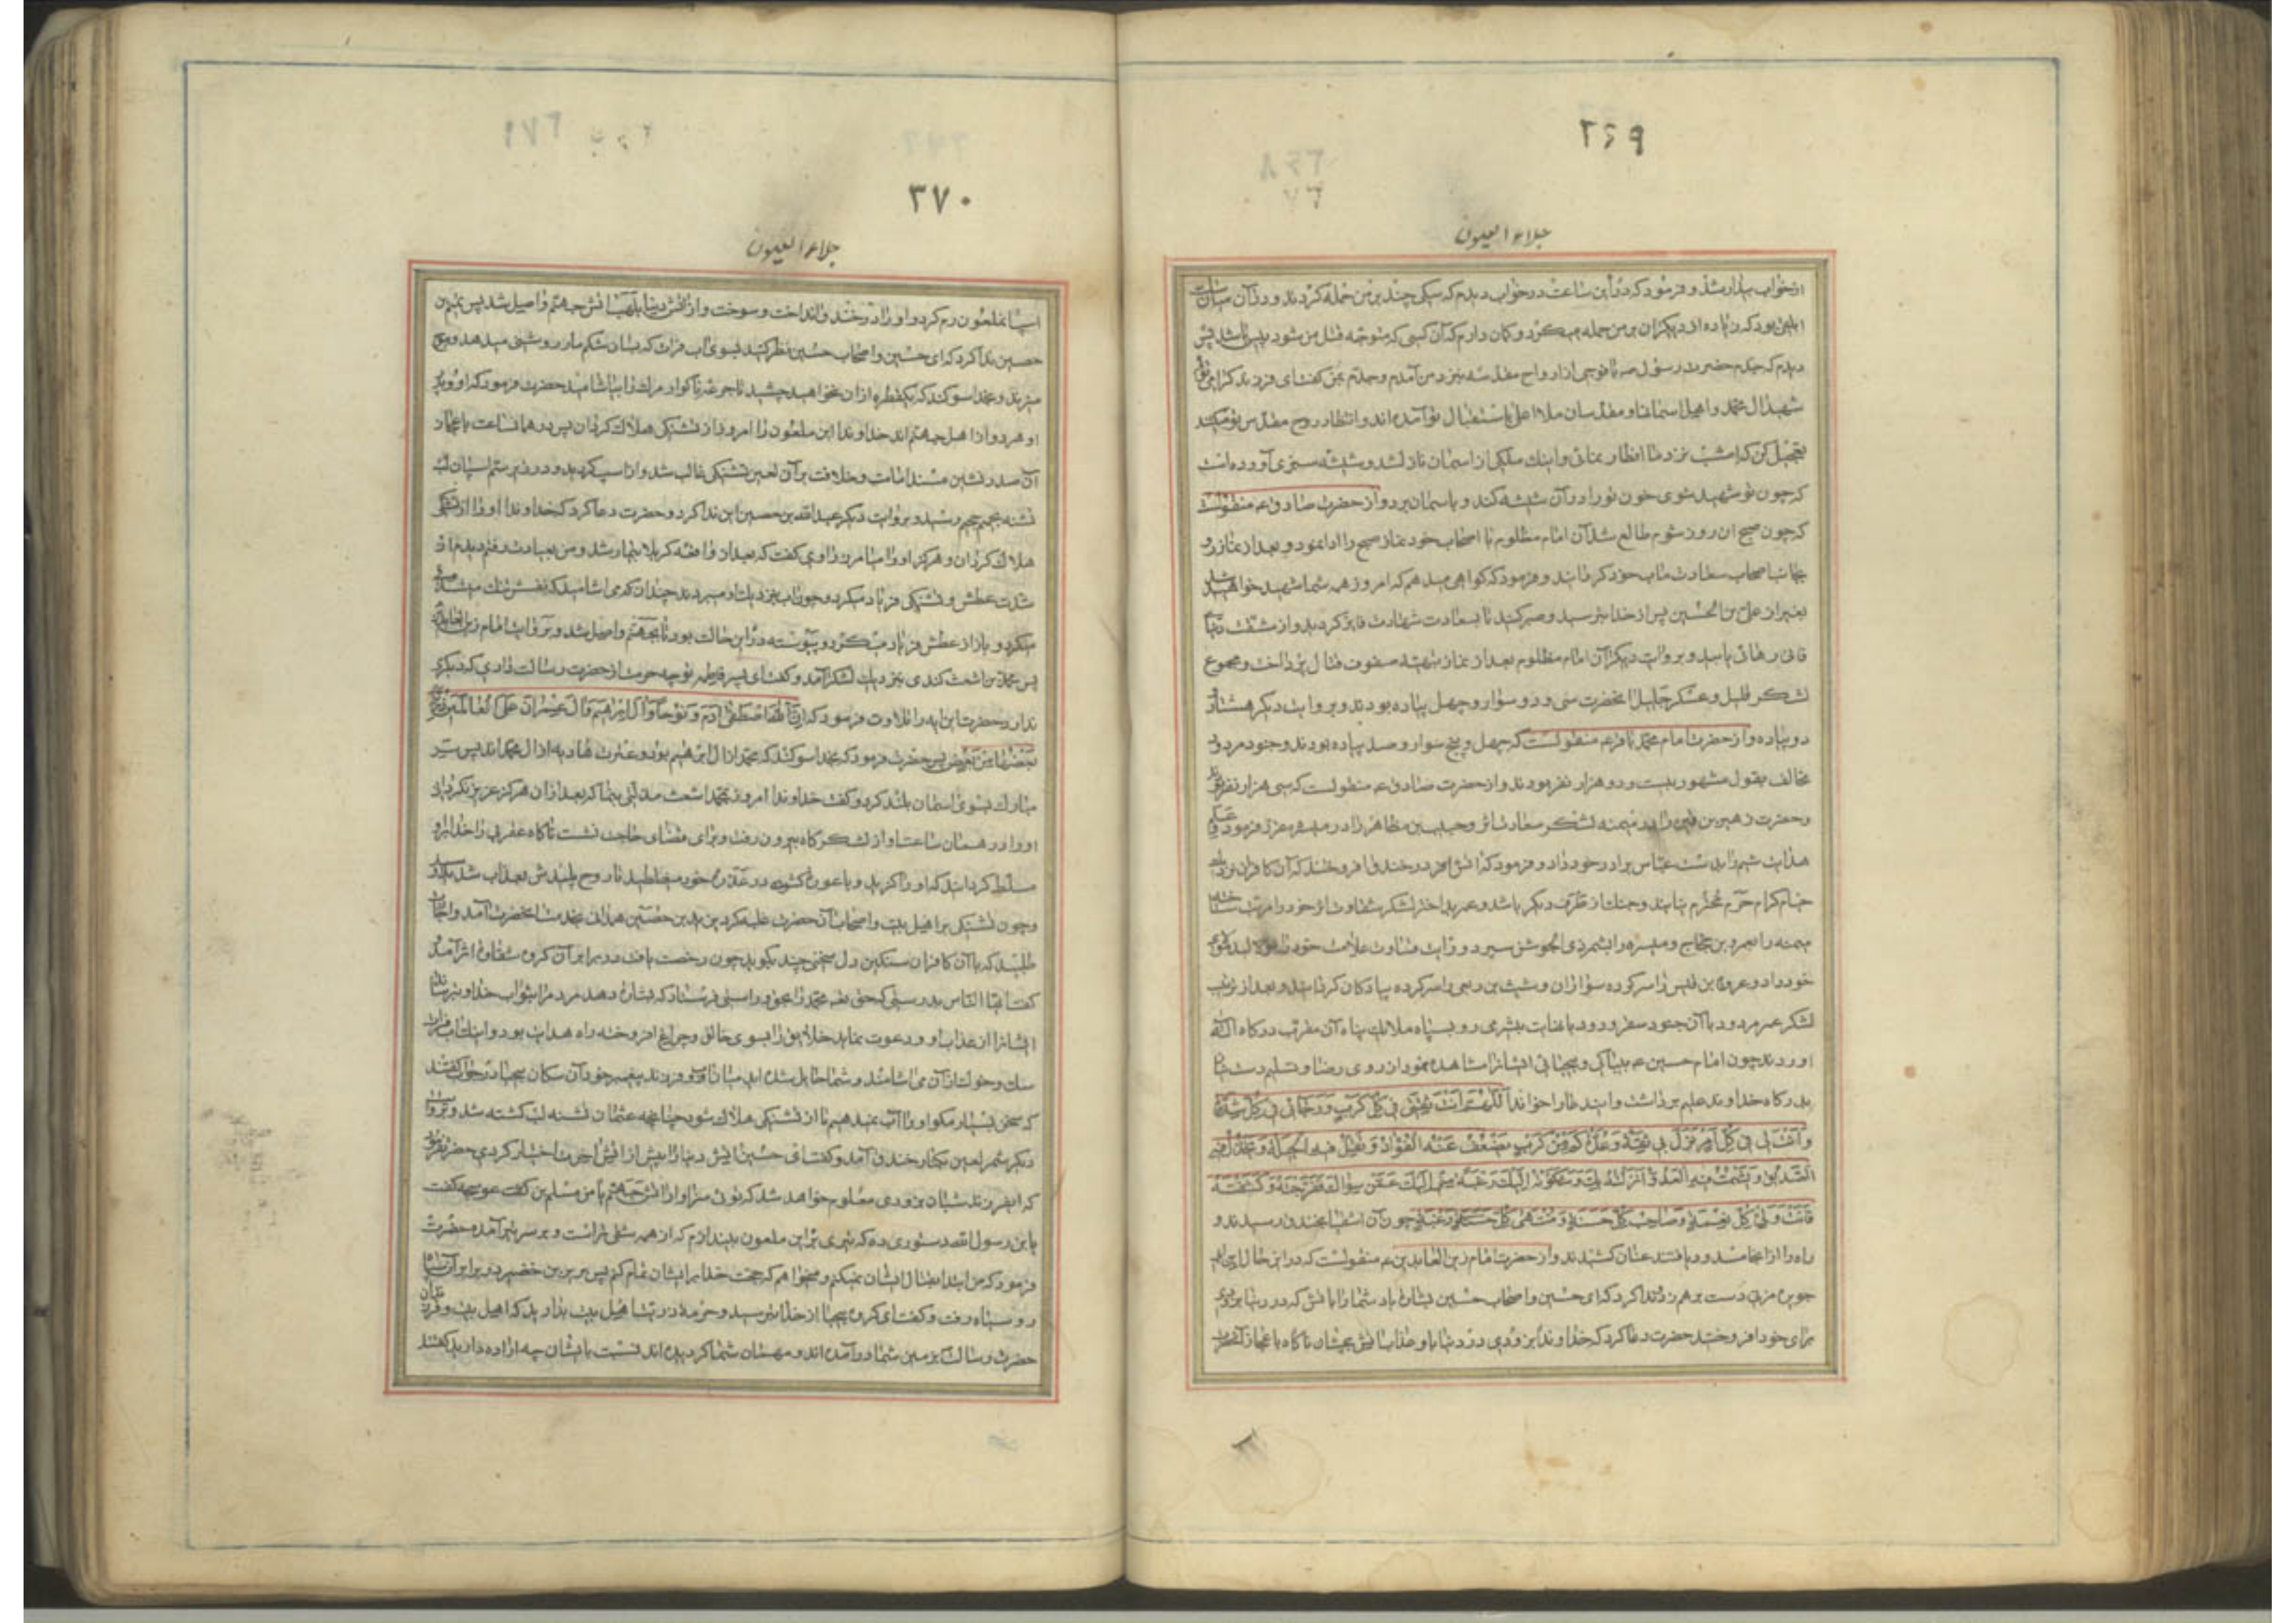 ۳۶۹
جلاء العیون
از خواب بیدار شد و فرمود که در این ساعت در خواب دیدم که سگی چند بر من حمله کردند و در آن میان
ابلقی بود که زیاده از دیگران بر من حمله میکرد و گمان دارم که آن کسی که متوجه قتل من شود پس
دیدم که جدم حضرت رسول ص با فوجی از ارواح مقدسه بنزد من آمدم و جدم بمن گفت ای فرزند گرامی توئی
شهید آل محمد و اهل آسمانها و مقدسان ملاء اعلی باستقبال تو آمده اند و انتظار روح مقدس تو میکشند
تعجیل کن که امشب نزد ما افطار نمائی و اینک ملکی از آسمان نازل شد و شیشه سبزی آورده است
که چون تو شهید شوی خون تو را در آن شیشه کند و باسمان برد و از حضرت صادق ع منقولست
که چون صبح آن روز شوم طالع شد آن امام مظلوم با اصحاب خود نماز صبح را ادا نمود و بعد از نماز رو
بجانب اصحاب سعادت ماب خود گردانید و فرمود که گواهی میدهم که امروز همه شما شهید خواهید
بغیر از علی بن الحسین پس از خدا بترسید و صبر کنید تا بسعادت شهادت فایز گردید و از مشقت دنیای
فانی رهائی یابید و بروایت دیگر آن امام مظلوم بعد از نماز بتهیه صفوف قتال پرداخت و مجموع
لشکر قلیل و عسکر جلیل آنحضرت سی و دو سوار و چهل پیاده بودند و بروایت دیگر هشتاد و
دو پیاده و از حضرت امام محمد باقر ع منقولست که چهل و پنج سوار و صد پیاده بودند و جنود مردود
مخالف بقول مشهور بیست و دو هزار نفر بودند و از حضرت صادق ع منقولست که سی هزار نفر بودند
و حضرت زهیر بن قین را در میمنه لشکر سعادت اثر و حبیب بن مظاهر را در میسره مقرر فرمود و علم
هدایت شیم را بدست عباس برادر خود داد و فرمود که آتش در خندق افروختند که آن کافران
خیام کرام حرم محترم نیایند و جنک از طرف دیگر باشد و عمر بد اختر لشکر شقاوت اثر خود را مرتب ساخته
میمنه را بعمرو بن حجاج و میسره را بشمر ذی الجوشن سپرد و رایت ضلالت علامت خود را
خود داد و عروة بن قیس را سرکرده سواران و شبث بن ربعی را سرکرده پیادگان گردانید و بعد از ترتیب
لشکر عمر مردود با آن جنود مطرود با غایت بیشرمی رو بسپاه ملائک پناه آن مقرب درگاه اله
آوردند چون امام حسین ع بیباکی و بیحیائی ایشانرا مشاهده نمود از روی رضا و تسلیم دست
بدرگاه خداوند علیم برداشت و این دعا را خواند اللهم انت ثقتی فی کل کرب و رجائی فی کل شدة
و انت لی فی کل امر نزل بی ثقة و عدة کم من کرب یضعف عنه الفؤاد و تقل فیه الحیلة و یخذل فیه
الصدیق و یشمت فیه العدو انزلته بک و شکوته الیک رغبة منی الیک عمن سواک ففرجته و کشفته
فانت ولی کل نعمة و صاحب کل حسنة و منتهی کل رغبة چون آن اشقیا بخندق رسیدند و
راه را از آنجا مسدود یافتند عنان کشیدند و از حضرت امام زین العابدین ع منقولست که در این حال
جویره مزنی دست بر هم زد و ندا کرد که ای حسین و اصحاب حسین بشارت باد شما را باتش که در دنیا بزودی
برای خود افروختید حضرت دعا کرد که خداوندا بزودی در دنیا باو عذاب آتش بچشان ناگاه باعجاز آنحضرت
۳۷۰
جلاء العیون
اسب آنملعون رم کرد و او را در خندق انداخت و سوخت و از آتش دنیا بلهب آتش جهنم واصل شد پس تمیم بن
حصین ندا کرد که ای حسین و اصحاب حسین نظر کنید بسوی آب فرات که بسان شکم مار روشنی میدهد و موج
میزند و بخدا سوگند که یکقطره از آن نخواهید چشید تا جرعه ناگوار مرک را بیاشامید حضرت فرمود که او و پدر
او هر دو از اهل جهنم اند خداوندا این ملعون را امروز از تشنگی هلاک گردان پس در همانساعت باعجاز
آن صدر نشین مسند امامت و خلافت بر آن لعین تشنگی غالب شد و از اسب گردید و در زیر سم اسبان لب
تشنه بجحیم رسید و بروایت دیگر عبدالله بن حصین این ندا کرد و حضرت دعا کرد که خداوندا او را از تشنگی
هلاک گردان و هرگز او را میامرز راوی گفت که بعد از واقعه کربلا بیمار شد و من بعیادت رفتم دیدم از
شدت عطش و تشنگی فریاد میکرد و چون آب بنزدیک او میبردند چندان که می آشامید که نفسش تنک میشد
میکرد و باز از عطش فریاد میکرد و پیوسته در این حالت بود تا بجهنم واصل شد و بروایت امام زین العابدین
پس محمد بن اشعث کندی بنزدیک لشکر آمد و گفت ای پسر فاطمه تو چه حرمت از حضرت رسالت داری که دیگری
ندارد حضرت این آیه را تلاوت فرمود که ان الله اصطفی آدم و نوحا و آل ابراهیم و آل عمران علی العالمین ذریة
بعضها من بعض پس حضرت فرمود که بخدا سوگند که محمد از آل ابراهیم بود و عترت هادیه از آل محمد اند پس سر
مبارک بسوی آسمان بلند کرد و گفت خداوندا امروز بمحمد اشعث مذلتی بنما که بعد از آن هرگز عزیز نگردد
او را در همان ساعت او از لشکرگاه بیرون رفت و برای قضای حاجت نشست ناگاه عقربی را خدا بر او
مسلط گردانید که او را گزید و با عورت گشوده در عذره خود میغلطید تا روح پلیدش بعذاب شدید
و چون تشنگی بر اهل بیت و اصحاب آنحضرت غلبه کرد یزید بن حصین همدانی بخدمت آنحضرت آمد و اجازت
طلبید که با آن کافران سنگین دل سخنی چند بگوید چون رخصت یافت در برابر آن گروه شقاوت اثر آمد و
گفت ایها الناس بدرستی که حق تعالی محمد را بحق و راستی فرستاد که بشارت دهد مردم را بثواب خدا و بترساند
ایشانرا از عذاب او و دعوت نماید خلایق را بسوی خالق و چراغ افروخته راه هدایت بود و اینک آب فرات
سک و خوک از آن می آشامند و شما حایل شده اید میان آن و فرزند پیغمبر خود آن سگان بیحیا در جواب گفتند
که سخن بسیار مگو او را آب نمیدهیم تا از تشنگی هلاک شود چنانچه عثمان تشنه لب کشته شد و بروایت
دیگر شمر لعین بکنار خندق آمد و گفت ای حسین آتش دنیا را پیش از آتش آخرت اختیار کردی حضرت فرمود
که ای فرزند شبان بزودی معلوم خواهد شد که توئی سزاوار آتش جهنم یا من مسلم بن عوسجه گفت
یابن رسول الله دستوری ده که تیری بر این ملعون بیندازم که از همه شقی تر است و بر سر تیر آمده حضرت
فرمود که من ابتدا بقتال ایشان نمیکنم و میخواهم که حجت خدا بر ایشان تمام کنم پس بریر بن خضیر در برابر آن
رو سیاه رفت و گفت ای گروه بیحیا از خدا بترسید و حرمت ذریت اهل بیت بدارید که اهل بیت و فرزندان
حضرت رسالت بزمین شما در آمده اند و مهمان شما گردیده اند نسبت بایشان چه اراده دارید گفتند